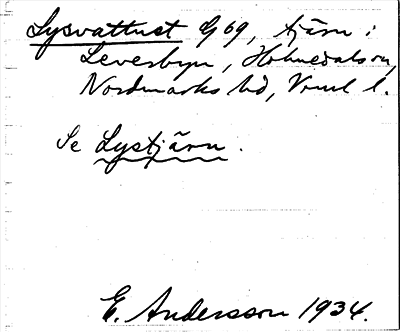 Lysvattnet G 69, tjärn i
Leverbyn, Holmedals sn,
Nordmarks hd, Vrml l.
Se Lystjärn.
E. Andersson 1934.